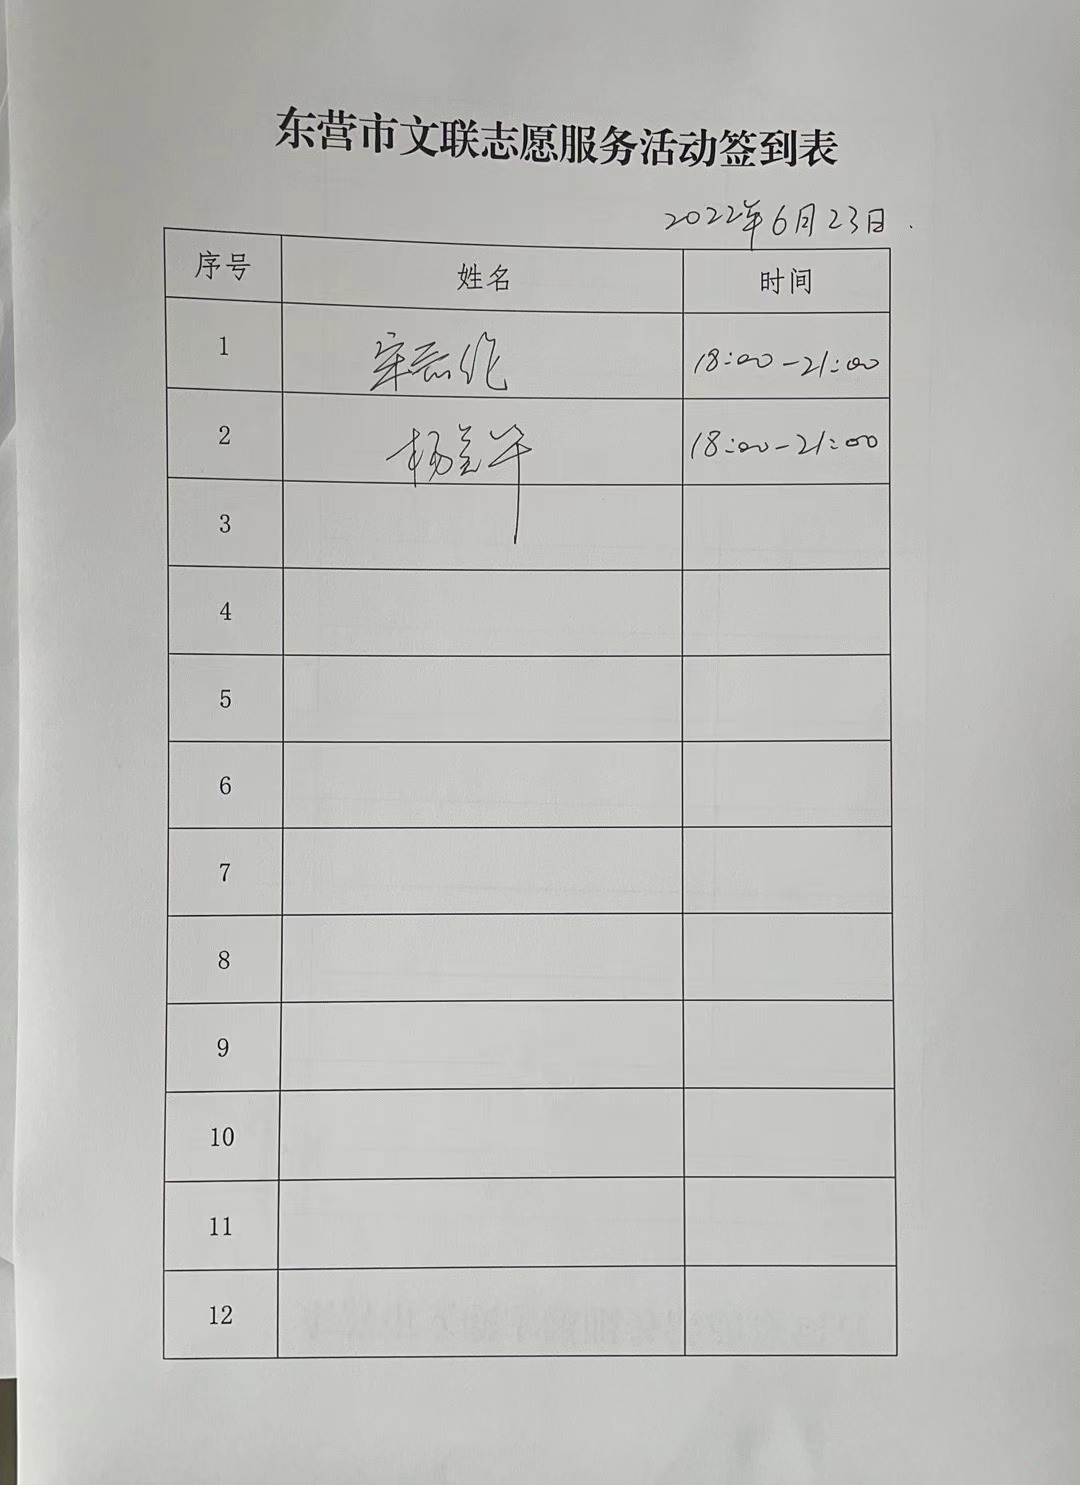 东营市文联志愿服务活动签到表
2022年6月23日
序号 姓名 时间
1 18:00-21:00
2 杨 18:00-21:00
3
4
5
6
7
8
9
10
11
12